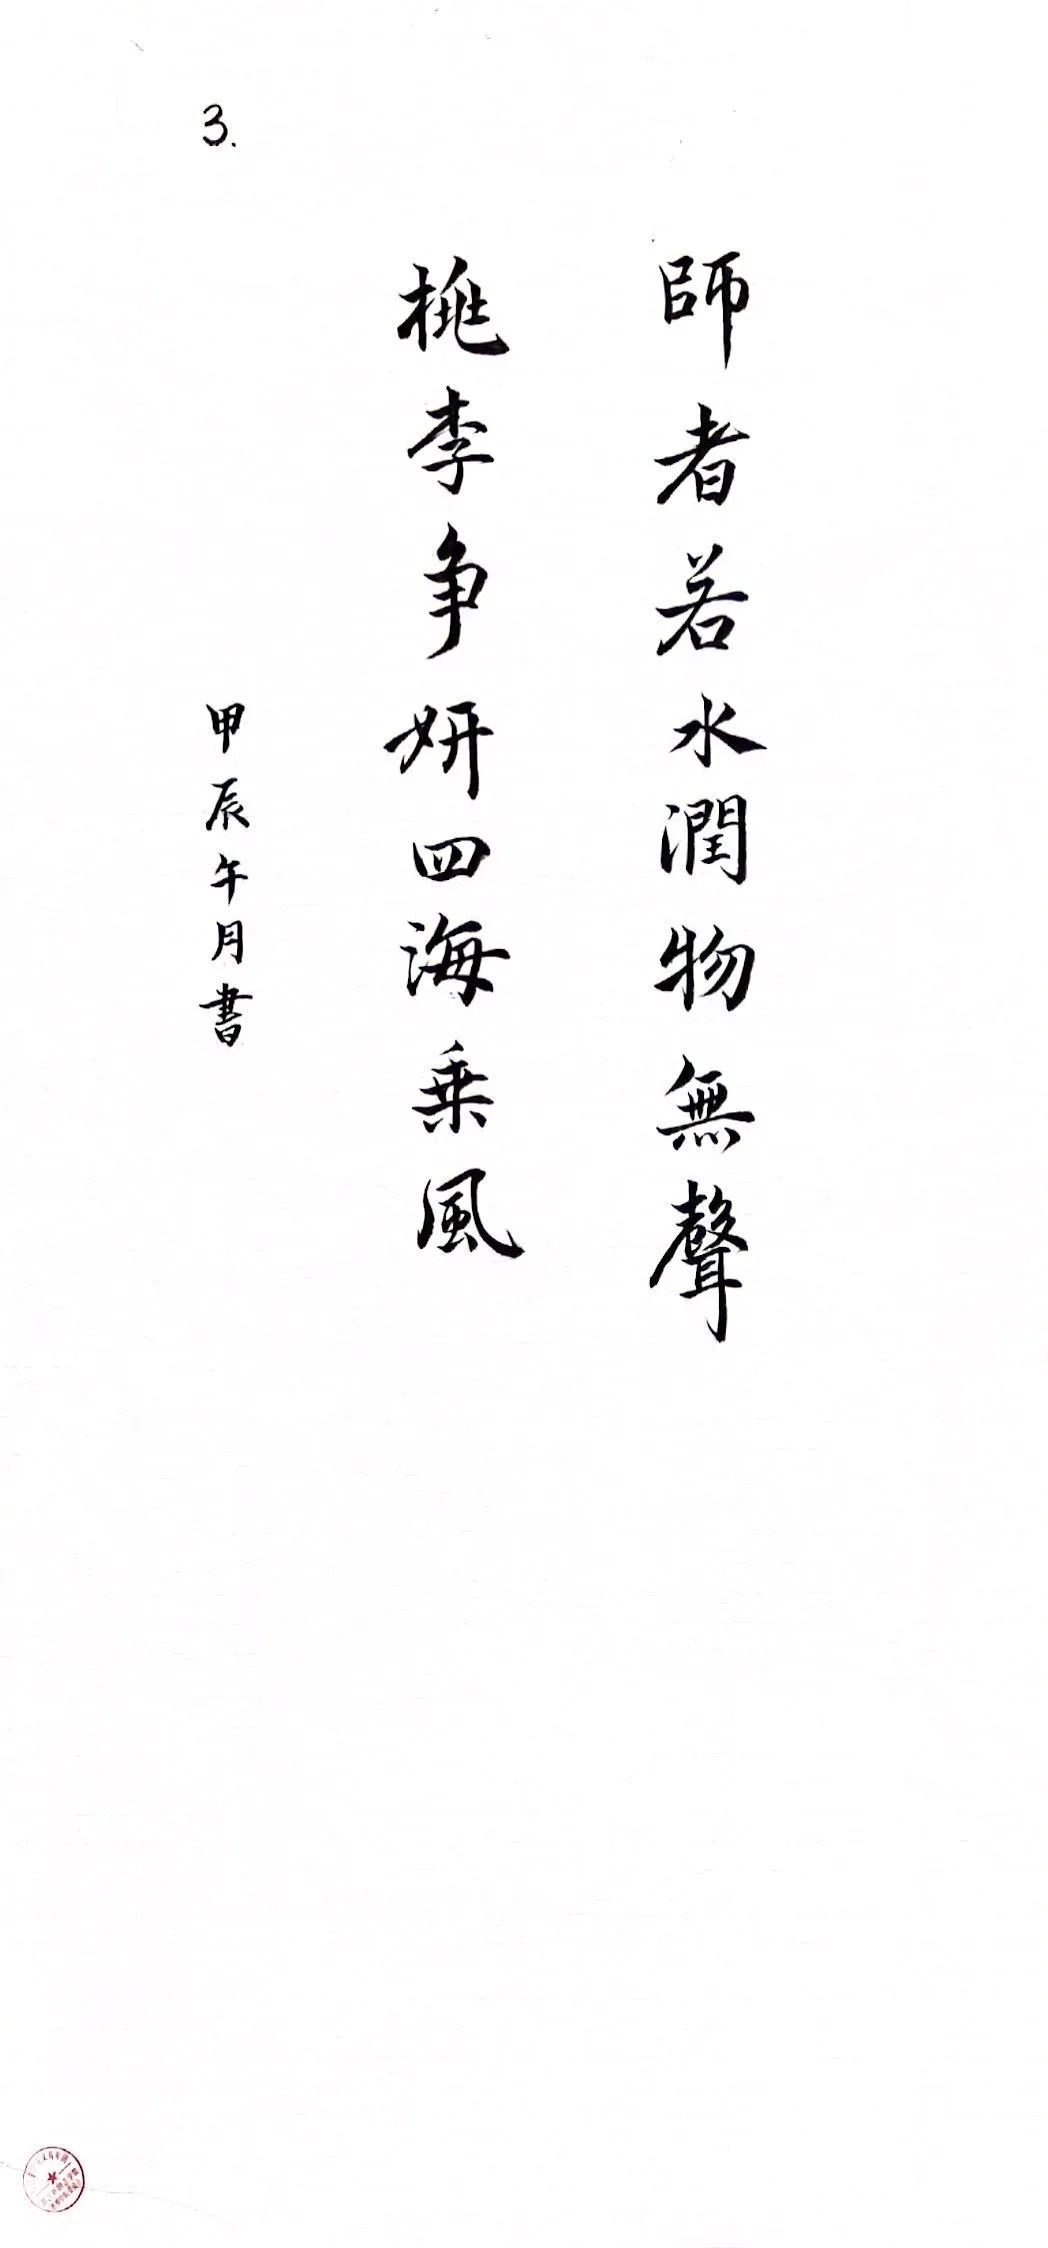 3.
師者若水潤物無聲
桃李争妍四海乗風
甲辰午月書